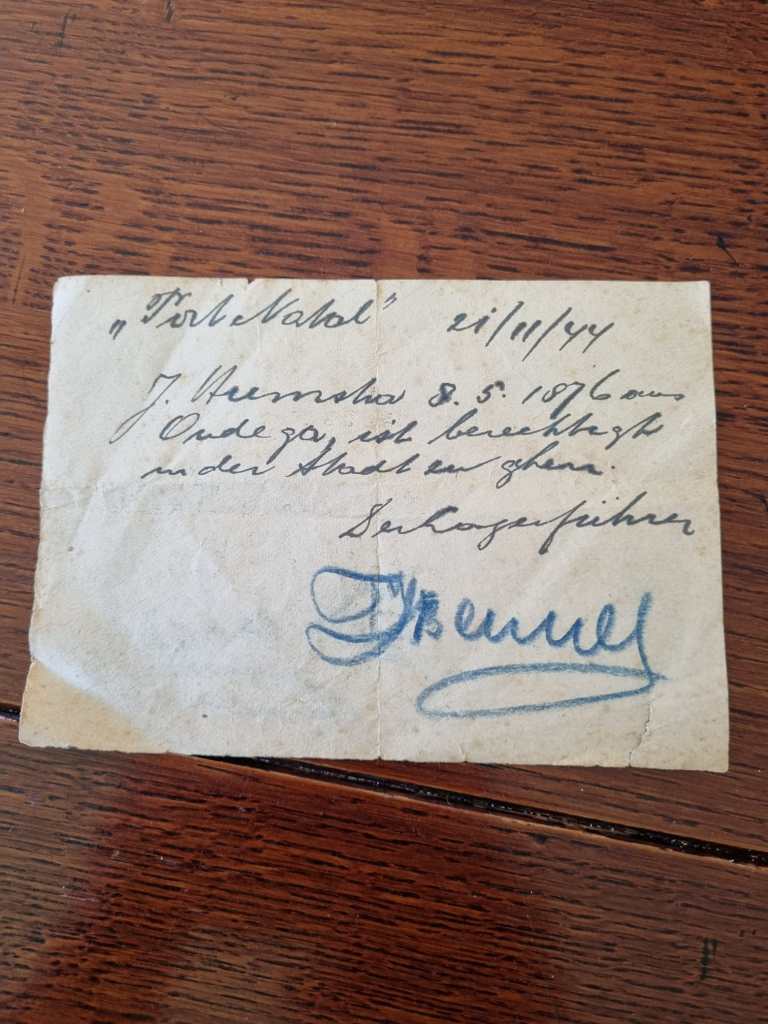 „Port Natal” 21/11/44
J. Heemstra 8.5.1876 aus
Oudega, ist berechtigt
in der Stadt zu gehen.
Der Lagerführer